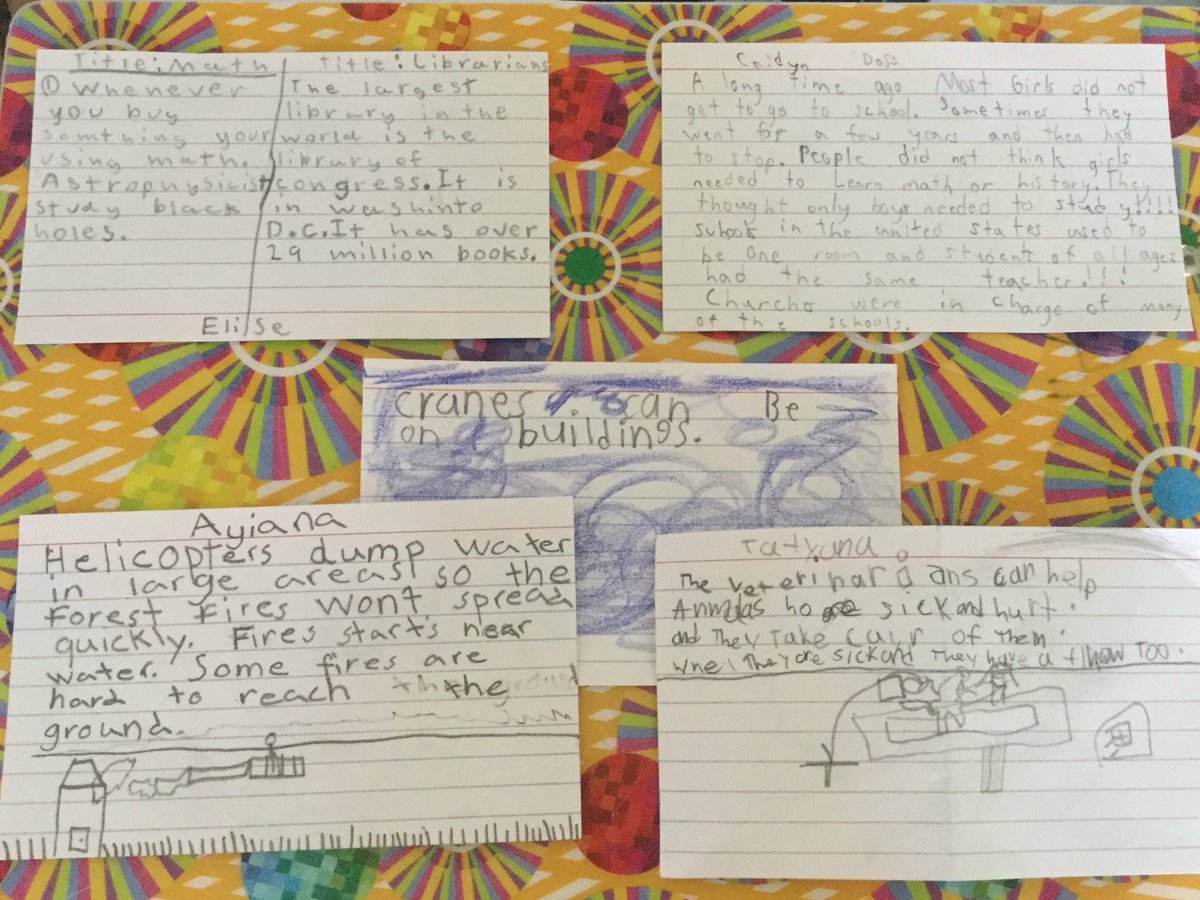 Title: Math
① Whenever
you buy
somthing your
using math.
Astrophysicist
study black
holes.
Title: Librarians
The largest
library in the
world is the
library of
congress. It is
in washinto
D.C. It has over
29 million books.
Elise
Caidyn Doss
A long time ago Most Girls did not
get to go to school. Sometimes they
went for a few years and then had
to stop. People did not think girls
needed to Learn math or history. They
thought only boys needed to study!!!!
schools in the united states used to
be one room and student of all ages
had the same teacher!!!
Churchs were in charge of many
of the schools.
cranes can Be
on buildings.
Ayiana
Helicopters dump water
in large areas so the
Forest fires wont spread
quickly. Fires starts near
water. Some fires are
hard to reach the
ground.
Tatyana
The veterinarians can help
sick and hurt.
and They Take cair of Them.
They are sick and They have a TOO.